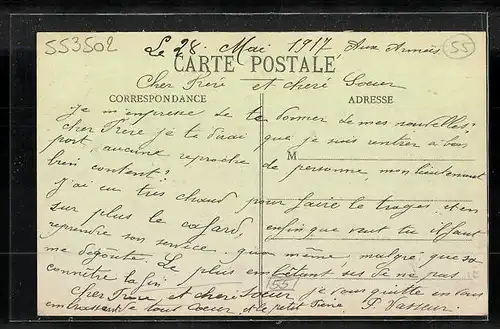 553502
Le 28. Mai 1917 Aux Armées
55
CARTE POSTALE
Cher Frère et cheré Soeur
CORRESPONDANCE
ADRESSE
Je m'empresse de te donner de mes nouvelles?
cher Frere je te dirai que je suis rentrer a bon
M
port, aucune reproche de personne, mon lieutenant
bien content?
J'ai eu tres chaud pour faire le trajes, et en
sur plus le cafard, enfin que veut tu il faut
reprendre son service quan même, malgré que sa
me dégoûte. Le plus embêtant ses de ne pas
connêtre la fin.
55
Cher Frère et cheré Soeur je vous quitte en vous
embrassant de tous Coeur et le petit Pierre P. Vasseur